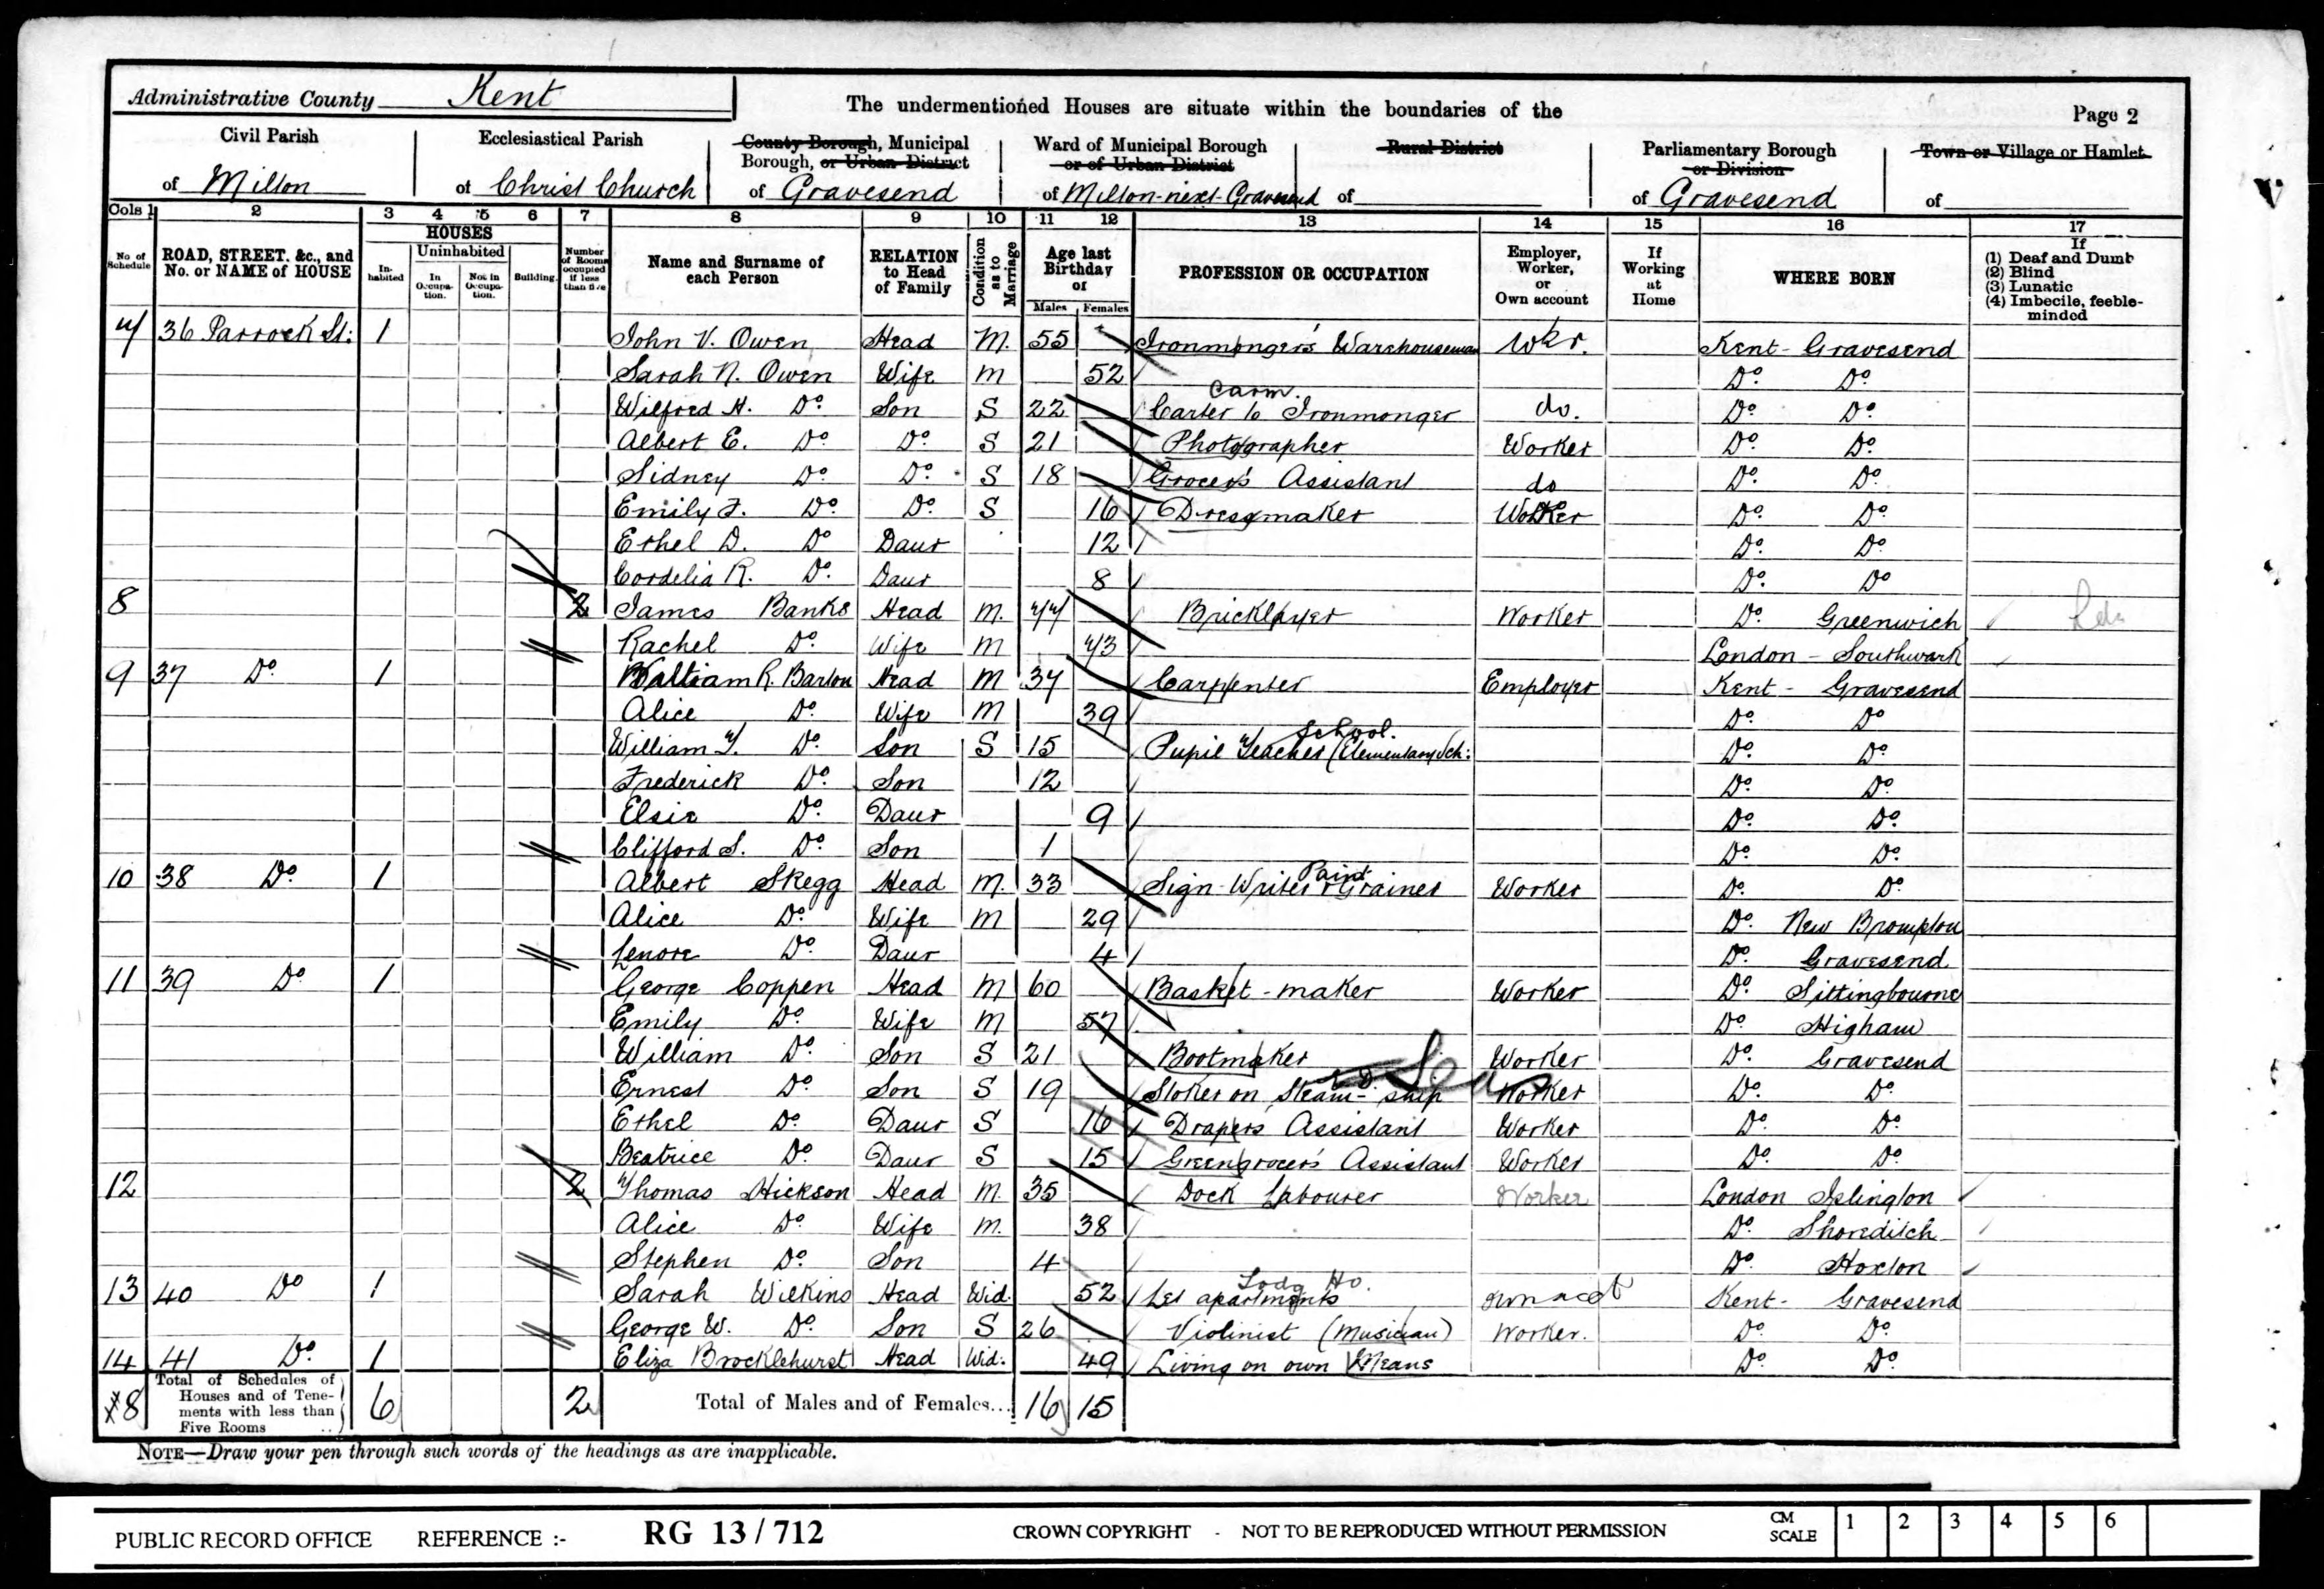 Administrative County Kent
The undermentioned Houses are situate within the boundaries of the
Page 2
Civil Parish of Milton
Ecclesiastical Parish of Christ Church
County Borough, Municipal Borough, or Urban District of Gravesend
Ward of Municipal Borough or of Urban District of Milton-next-Gravesend
Rural District of
Parliamentary Borough or Division of Gravesend
Town or Village or Hamlet of
Cols 1 2 3 4 5 6 7 8 9 10 11 12 13 14 15 16 17
No of Schedule
ROAD, STREET. &c., and No. or NAME of HOUSE
HOUSES
Inhabited
Uninhabited
In Occupation.
Not in Occupation.
Building.
Number of Rooms occupied if less than five
Name and Surname of each Person
RELATION to Head of Family
Condition as to Marriage
Age last Birthday of
Males Females
PROFESSION OR OCCUPATION
Employer, Worker, or Own account
If Working at Home
WHERE BORN
If (1) Deaf and Dumb (2) Blind (3) Lunatic (4) Imbecile, feeble-minded
7 36 Parrock St: 1 John V. Owen Head M. 55 Ironmonger's Warehouseman Wkr. Kent - Gravesend
Sarah N. Owen Wife M 52 Do. Do.
Carm.
Wilfred H. Do. Son S 22 Carter to Ironmonger do. Do. Do.
Albert E. Do. Do. S 21 Photographer Worker Do. Do.
Sidney Do. Do. S 18 Grocer's Assistant do Do. Do.
Emily F. Do. Do. S 16 Dressmaker Worker Do. Do.
Ethel D. Do Daur 12 Do. Do.
Cordelia R. Do. Daur 8 Do. Do
8 2 James Banks Head M. 44 Bricklayer Worker Do. Greenwich
Rachel Do. Wife M 43 London - Southwark
9 37 Do. 1 William R. Barton Head M 37 Carpenter Employer Kent - Gravesend
Alice Do. Wife M 39 Do. Do
School.
William T. Do. Son S 15 Pupil Teacher (Elementary Sch: Do. Do.
Frederick Do. Son 12 Do. Do.
Elsie Do. Daur 9 Do. Do.
Clifford S. Do. Son 1 Do. Do.
Paint
10 38 Do. 1 Albert Skegg Head M. 33 Sign-Writer & Grainer Worker Do. Do.
Alice Do. Wife M 29 Do. New Brompton
Lenore Do. Daur 4 Do. Gravesend
11 39 Do 1 George Coppen Head M 60 Basket-maker Worker Do. Sittingbourne
Emily Do. Wife M 57 Do. Higham
William Do. Son S 21 Bootmaker Worker Do. Gravesend
Ernest Do. Son S 19 Stoker on Steam-ship Worker Do. Do.
Ethel Do. Daur S 16 Drapers Assistant Worker Do. Do.
Beatrice Do. Daur S 15 Greengrocer's Assistant Worker Do. Do.
12 2 Thomas Hickson Head M. 35 Dock Labourer Worker London Islington
Alice Do. Wife M. 38 Do. Shoreditch
Stephen Do. Son 4 Do. Hoxton
Lodg Ho.
13 40 Do 1 Sarah Wilkins Head Wid. 52 Let apartments own acct Kent - Gravesend
George W. Do. Son S 26 Violinist (Musician) Worker. Do. Do.
14 41 Do. 1 Eliza Brocklehurst Head Wid: 49 Living on own Means Do. Do.
8 Total of Schedules of Houses and of Tenements with less than Five Rooms 6 2 Total of Males and of Females... 16 15
NOTE—Draw your pen through such words of the headings as are inapplicable.
PUBLIC RECORD OFFICE REFERENCE :- RG 13/712 CROWN COPYRIGHT - NOT TO BE REPRODUCED WITHOUT PERMISSION CM SCALE 1 2 3 4 5 6